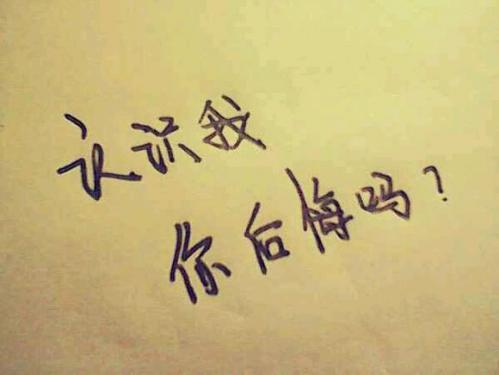 认识我
你后悔吗？